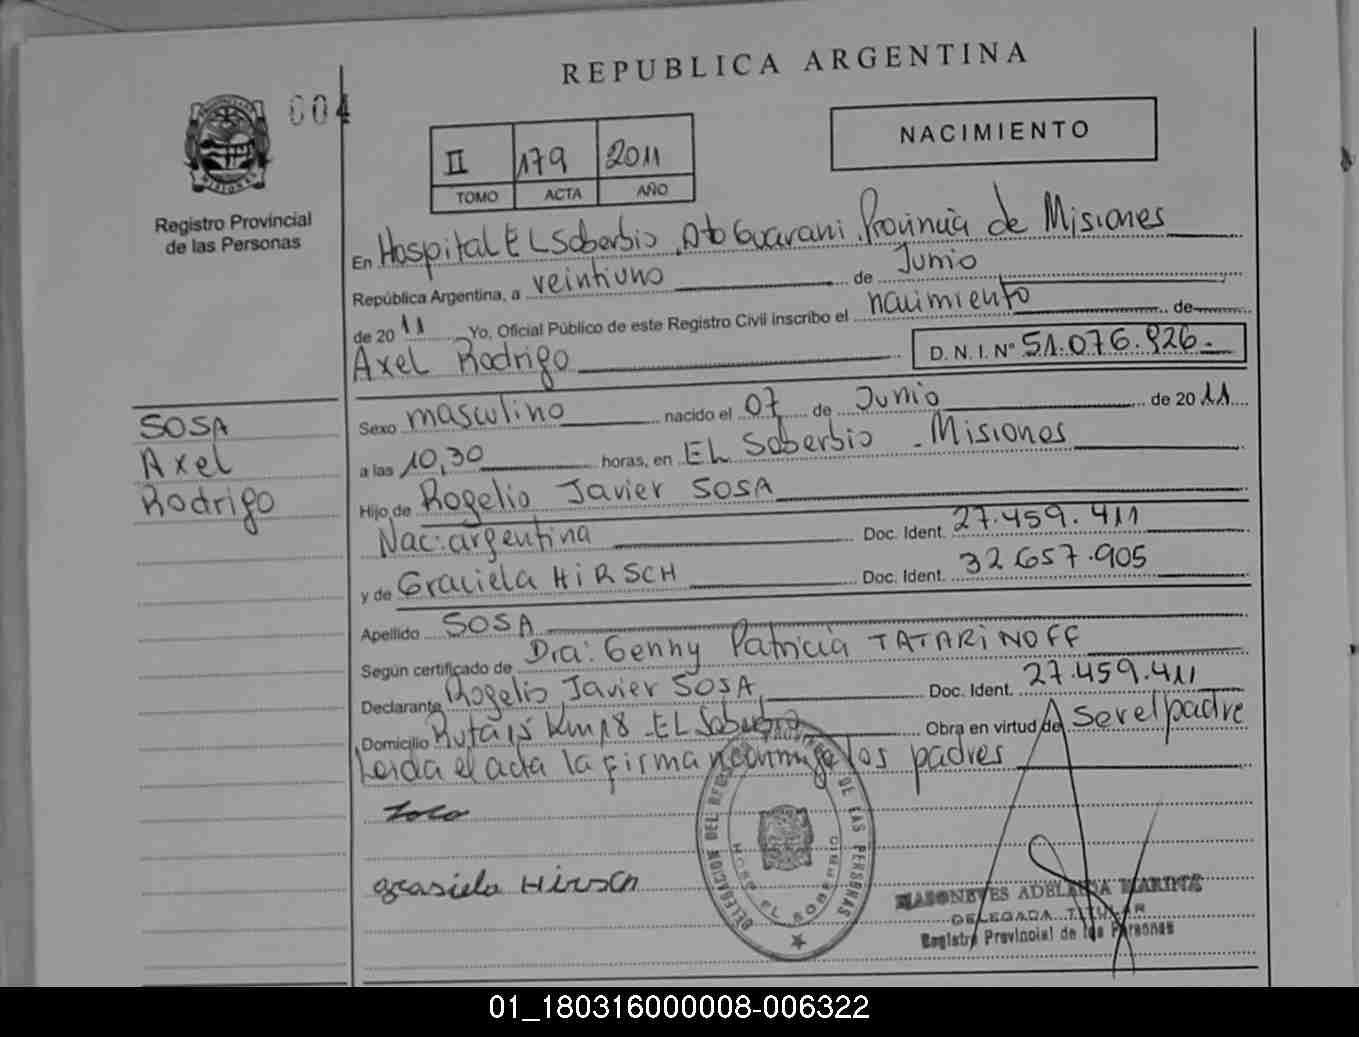 REPUBLICA ARGENTINA
004
NACIMIENTO
II 179 2011
TOMO ACTA AÑO
Registro Provincial
de las Personas
En Hospital EL Soberbio, Dto Guarani, Provincia de Misiones
República Argentina, a veintiuno de Junio
de 20 11 Yo, Oficial Público de este Registro Civil inscribo el nacimiento de
Axel Rodrigo D.N.I. Nº 51.076.926.
SOSA
Axel
Rodrigo
Sexo masculino nacido el 07 de Junio de 20 11
a las 10,30 horas, en EL Soberbio - Misiones
Hijo de Rogelio Javier SOSA
Nac: argentina Doc. Ident. 27.459.411
y de Graciela HIRSCH Doc. Ident. 32.657.905
Apellido SOSA
Según certificado de Dra: Genny Patricia TATARINOFF
Declarante Rogelio Javier SOSA Doc. Ident. 27.459.411
Domicilio Ruta 15 Km 18 - EL Soberbio Obra en virtud de Ser el padre
Leida el acta la firman conmigo los padres
graciela Hirsch
DELEGACION DEL REGISTRO PROVINCIAL DE LAS PERSONAS
HOSP. EL SOBERBIO
ADELAIDA MARINA
DELEGADA TITULAR
Registro Provincial de las Personas
01_180316000008-006322